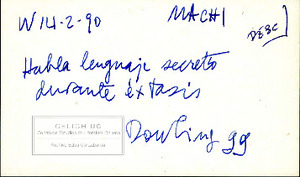 W14-2-90 MACHI DESC
Habla lenguaje secreto
durante éxtasis
Dowling 99
CELICH UC